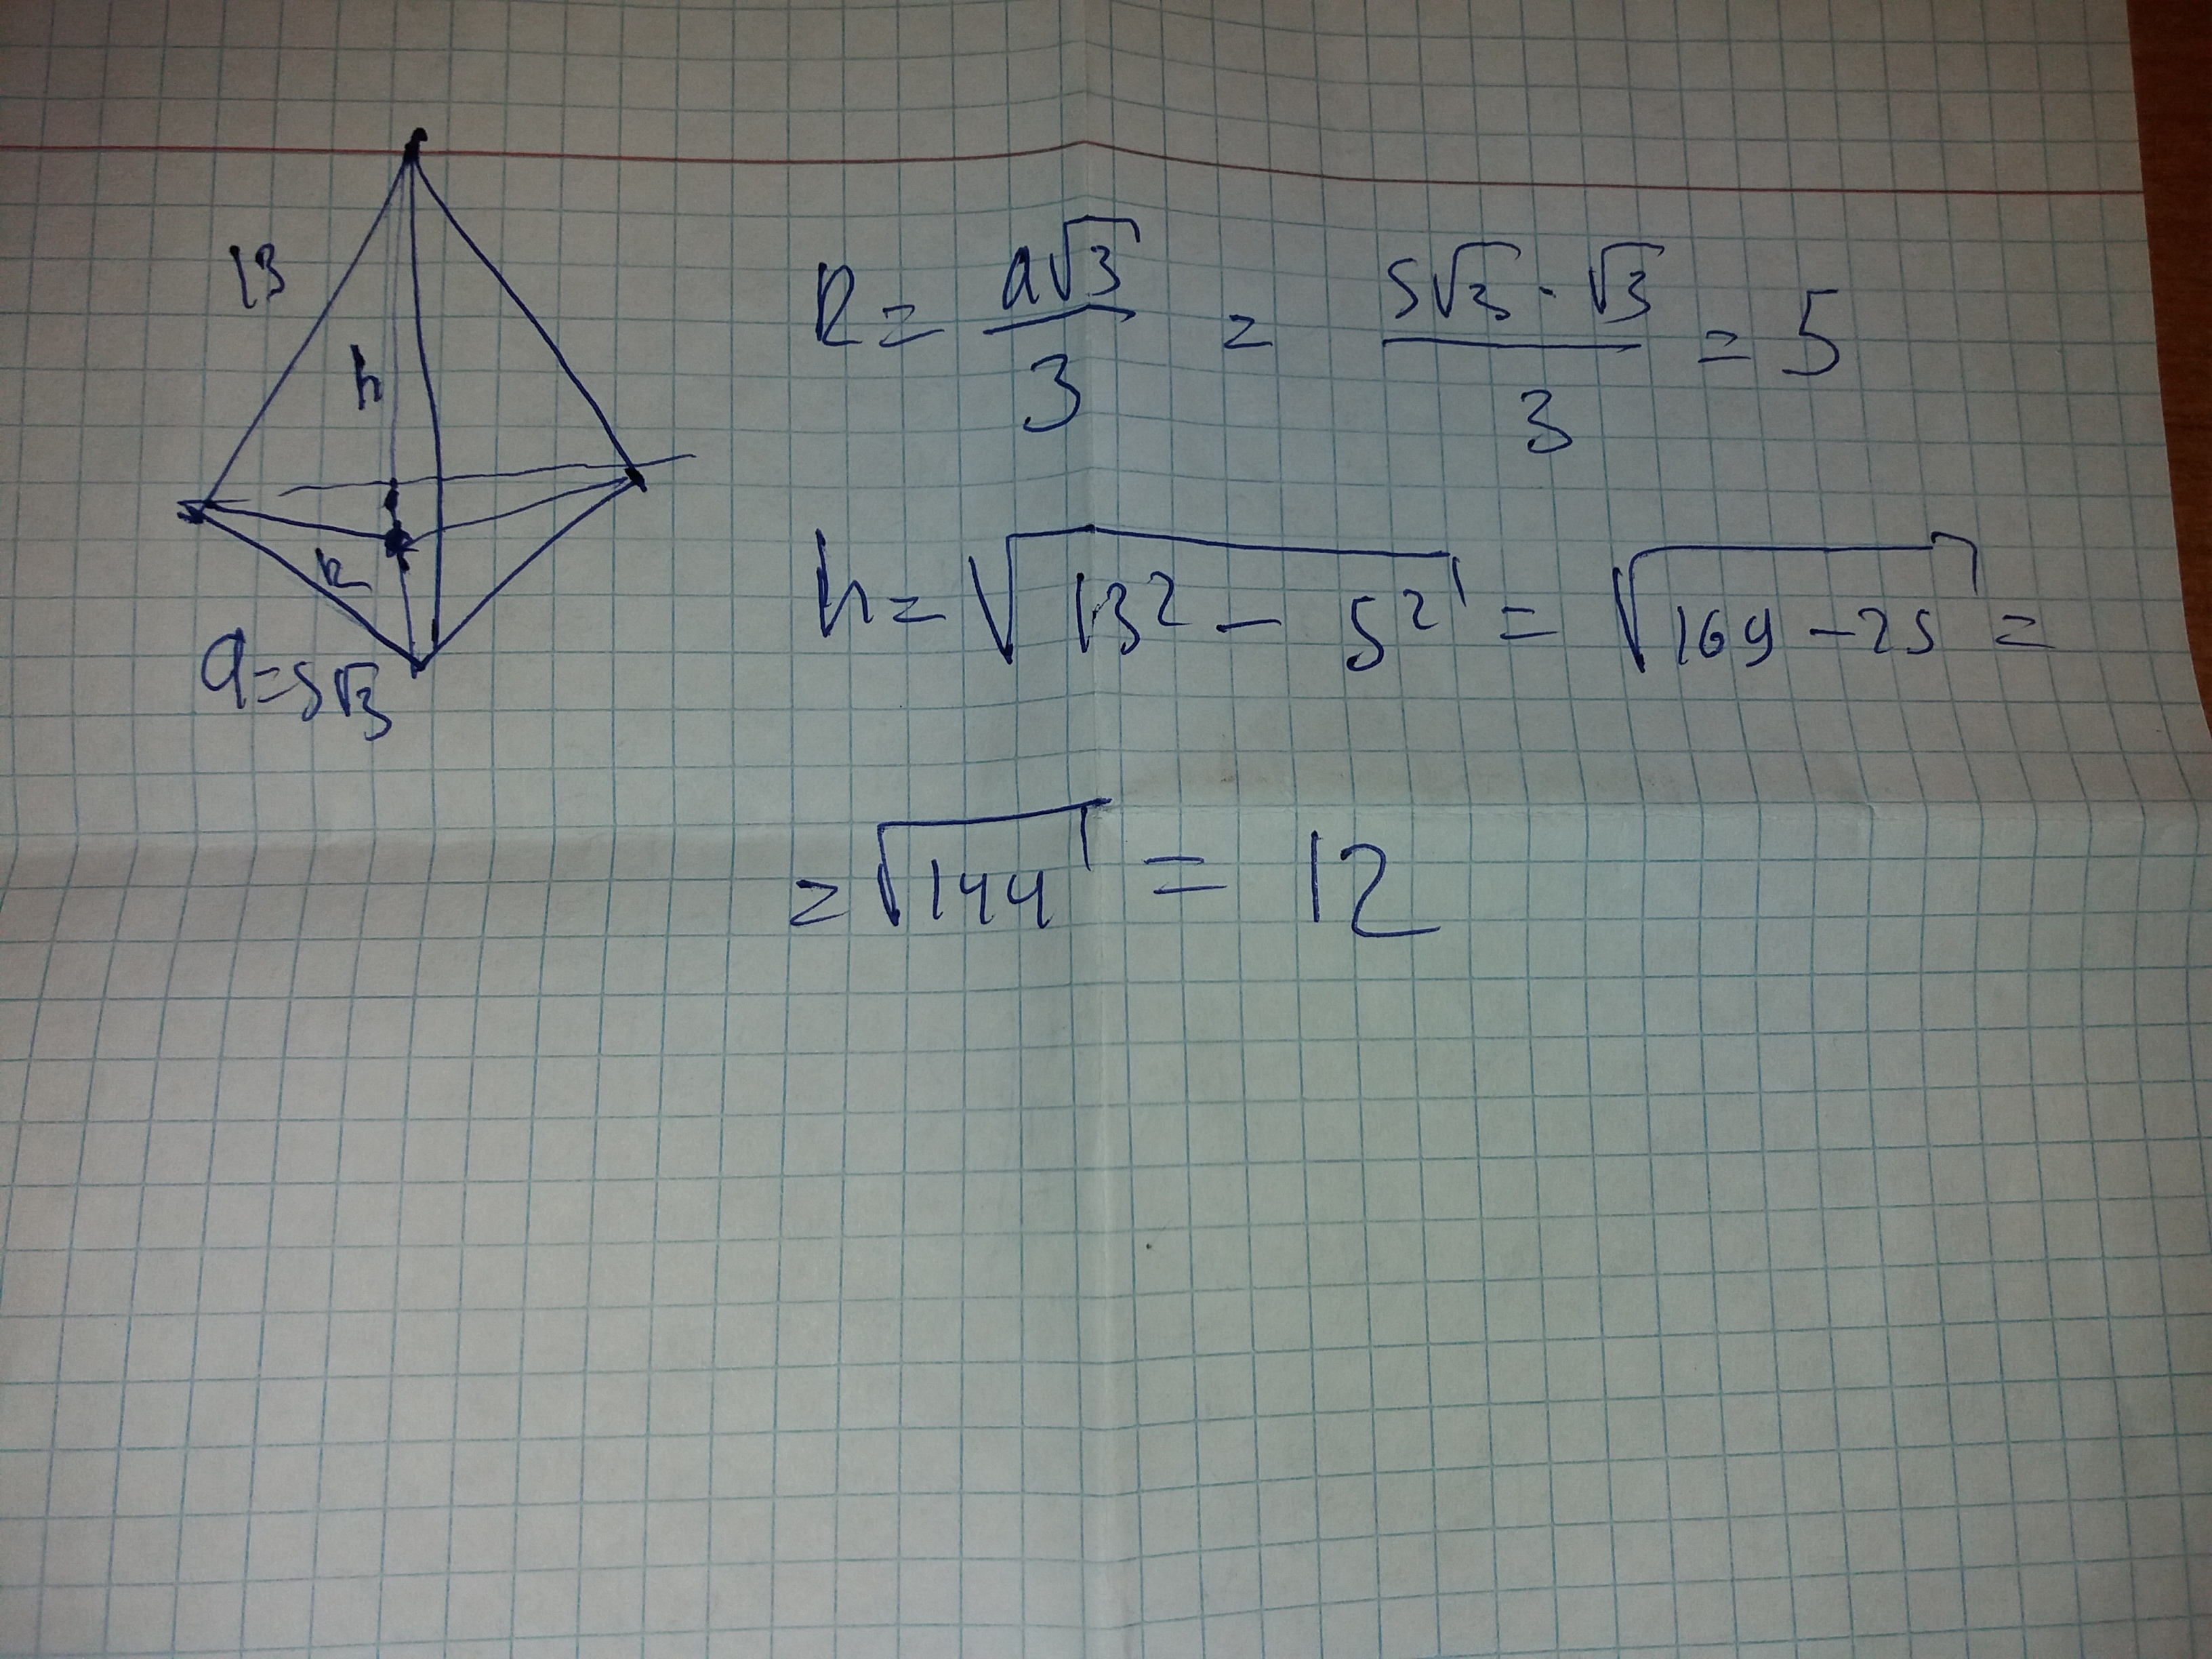 13
h
R
a=5√3
R = a√3/3 = 5√3 · √3/3 = 5
h = √13² - 5² = √169 - 25 =
= √144 = 12